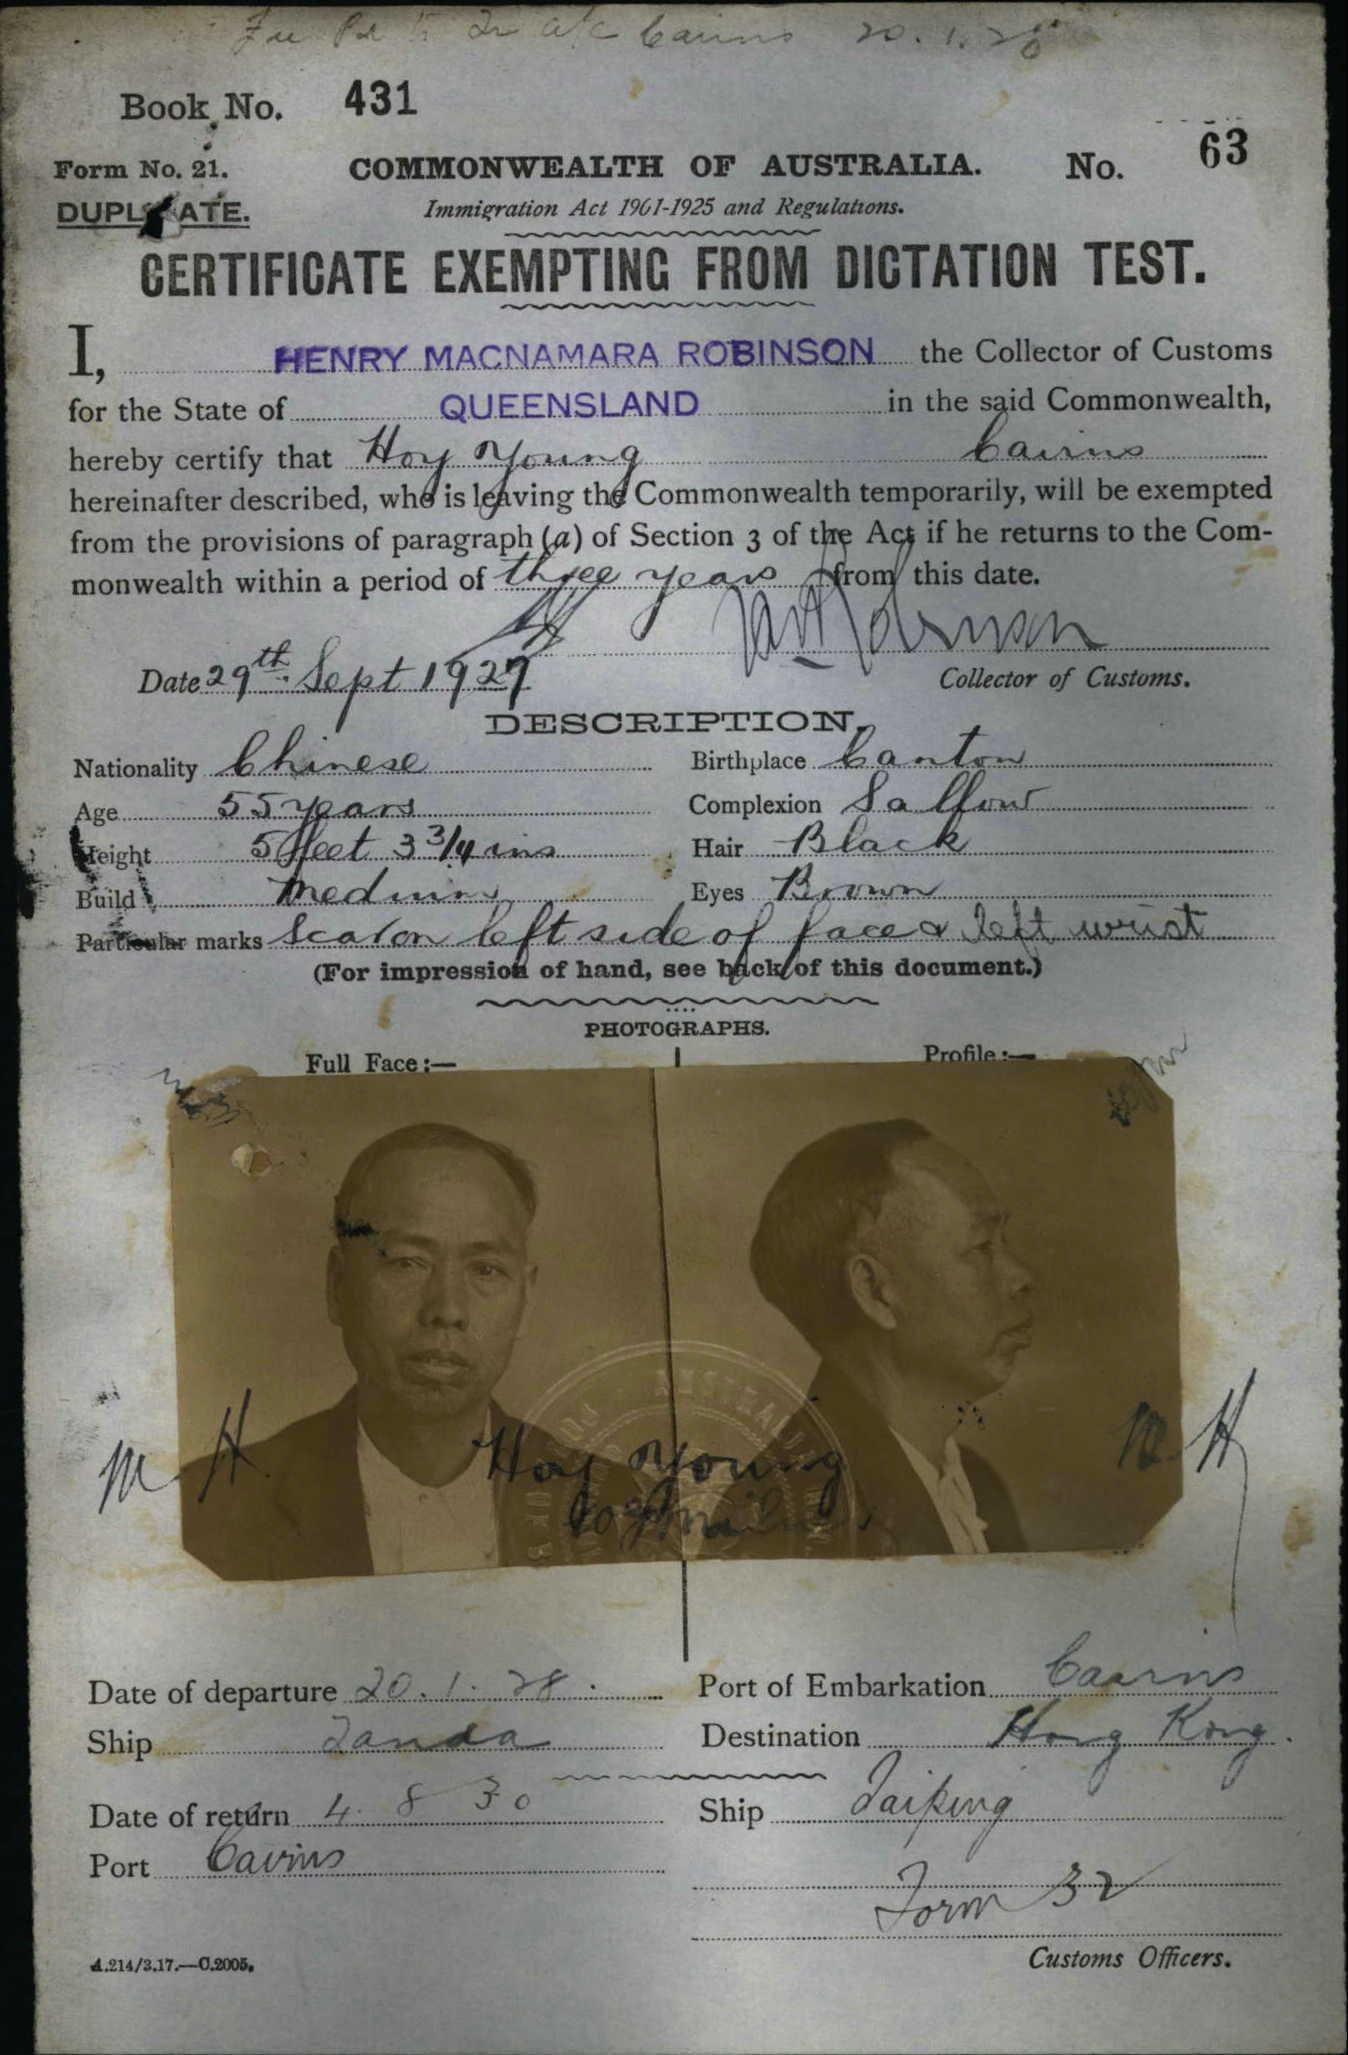 Cairns 20.1.28
Book No. 431
Form No. 21. COMMONWEALTH OF AUSTRALIA. No. 63
DUPLICATE. Immigration Act 1901-1925 and Regulations.
CERTIFICATE EXEMPTING FROM DICTATION TEST.
I, HENRY MACNAMARA ROBINSON the Collector of Customs
for the State of QUEENSLAND in the said Commonwealth,
hereby certify that Hoy Young Cairns
hereinafter described, who is leaving the Commonwealth temporarily, will be exempted
from the provisions of paragraph (a) of Section 3 of the Act if he returns to the Com-
monwealth within a period of three years from this date.
Date 29th Sept 1927
Collector of Customs.
DESCRIPTION.
Nationality Chinese Birthplace Canton
Age 55 years Complexion Sallow
Height 5 feet 3 3/4 ins Hair Black
Build Medium Eyes Brown
Particular marks Scar on left side of face & left wrist
(For impression of hand, see back of this document.)
PHOTOGRAPHS.
Full Face:— Profile:—
M H Hoy Young M H
Date of departure 20.1.28. Port of Embarkation Cairns
Ship Tanda Destination Hong Kong.
Date of return 4 8 30 Ship Taiping
Port Cairns
Form 32
A.214/3.17.—C.2005. Customs Officers.